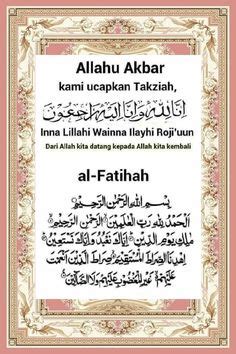 Allahu Akbar
kami ucapkan Takziah,
إِنَّا لِلَّٰهِ وَإِنَّا إِلَيْهِ رَاجِعُونَ
Inna Lillahi Wainna Ilayhi Roji'uun
Dari Allah kita datang kepada Allah kita kembali
al-Fatihah
بِسْمِ اللَّهِ الرَّحْمَٰنِ الرَّحِيمِ
الْحَمْدُ لِلَّهِ رَبِّ الْعَالَمِينَ الرَّحْمَٰنِ الرَّحِيمِ
مَالِكِ يَوْمِ الدِّينِ إِيَّاكَ نَعْبُدُ وَإِيَّاكَ نَسْتَعِينُ
اهْدِنَا الصِّرَاطَ الْمُسْتَقِيمَ صِرَاطَ الَّذِينَ أَنْعَمْتَ
عَلَيْهِمْ غَيْرِ الْمَغْضُوبِ عَلَيْهِمْ وَلَا الضَّالِّينَ